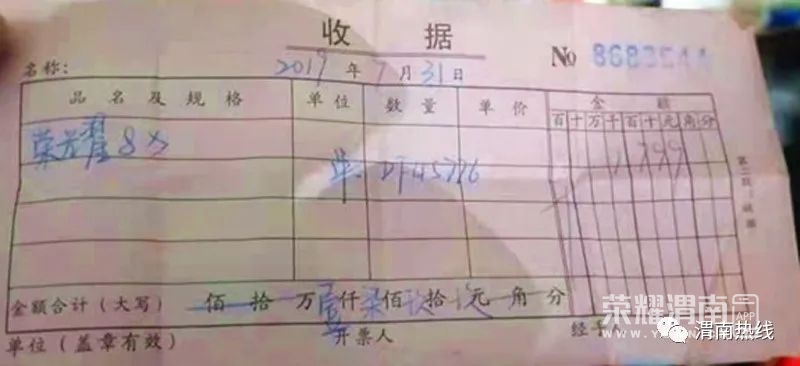 收据
№ 8683544
名称: 2019年7月31日
品名及规格 单位 数量 单价 金额
百十万千百十元角分
荣耀8X 1799
第二联:收据
金额合计(大写) 佰拾万壹仟柒佰玖拾元角分
单位(盖章有效) 开票人 经手
荣耀渭南APP
渭南热线